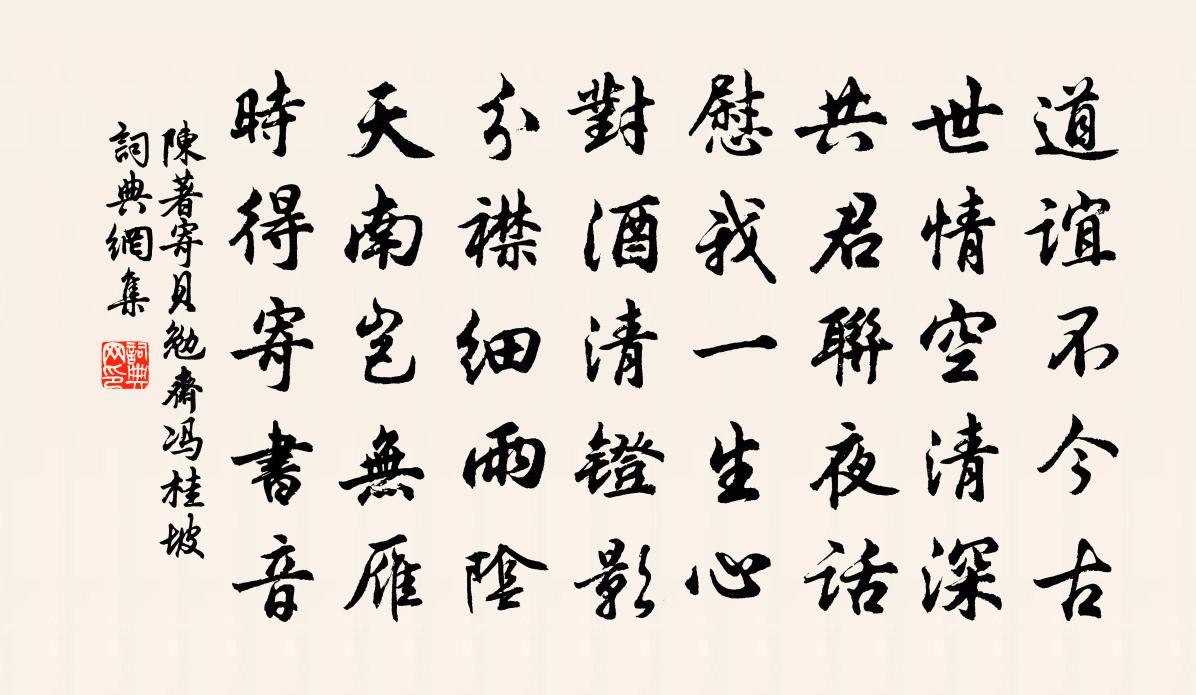 道誼不今古
世情空清深
共君聯夜話
慰我一生心
對酒清鐙影
分襟細雨陰
天南豈無雁
時得寄書音
陳著寄貝勉齋冯桂坡
詞典網集
詞典网印